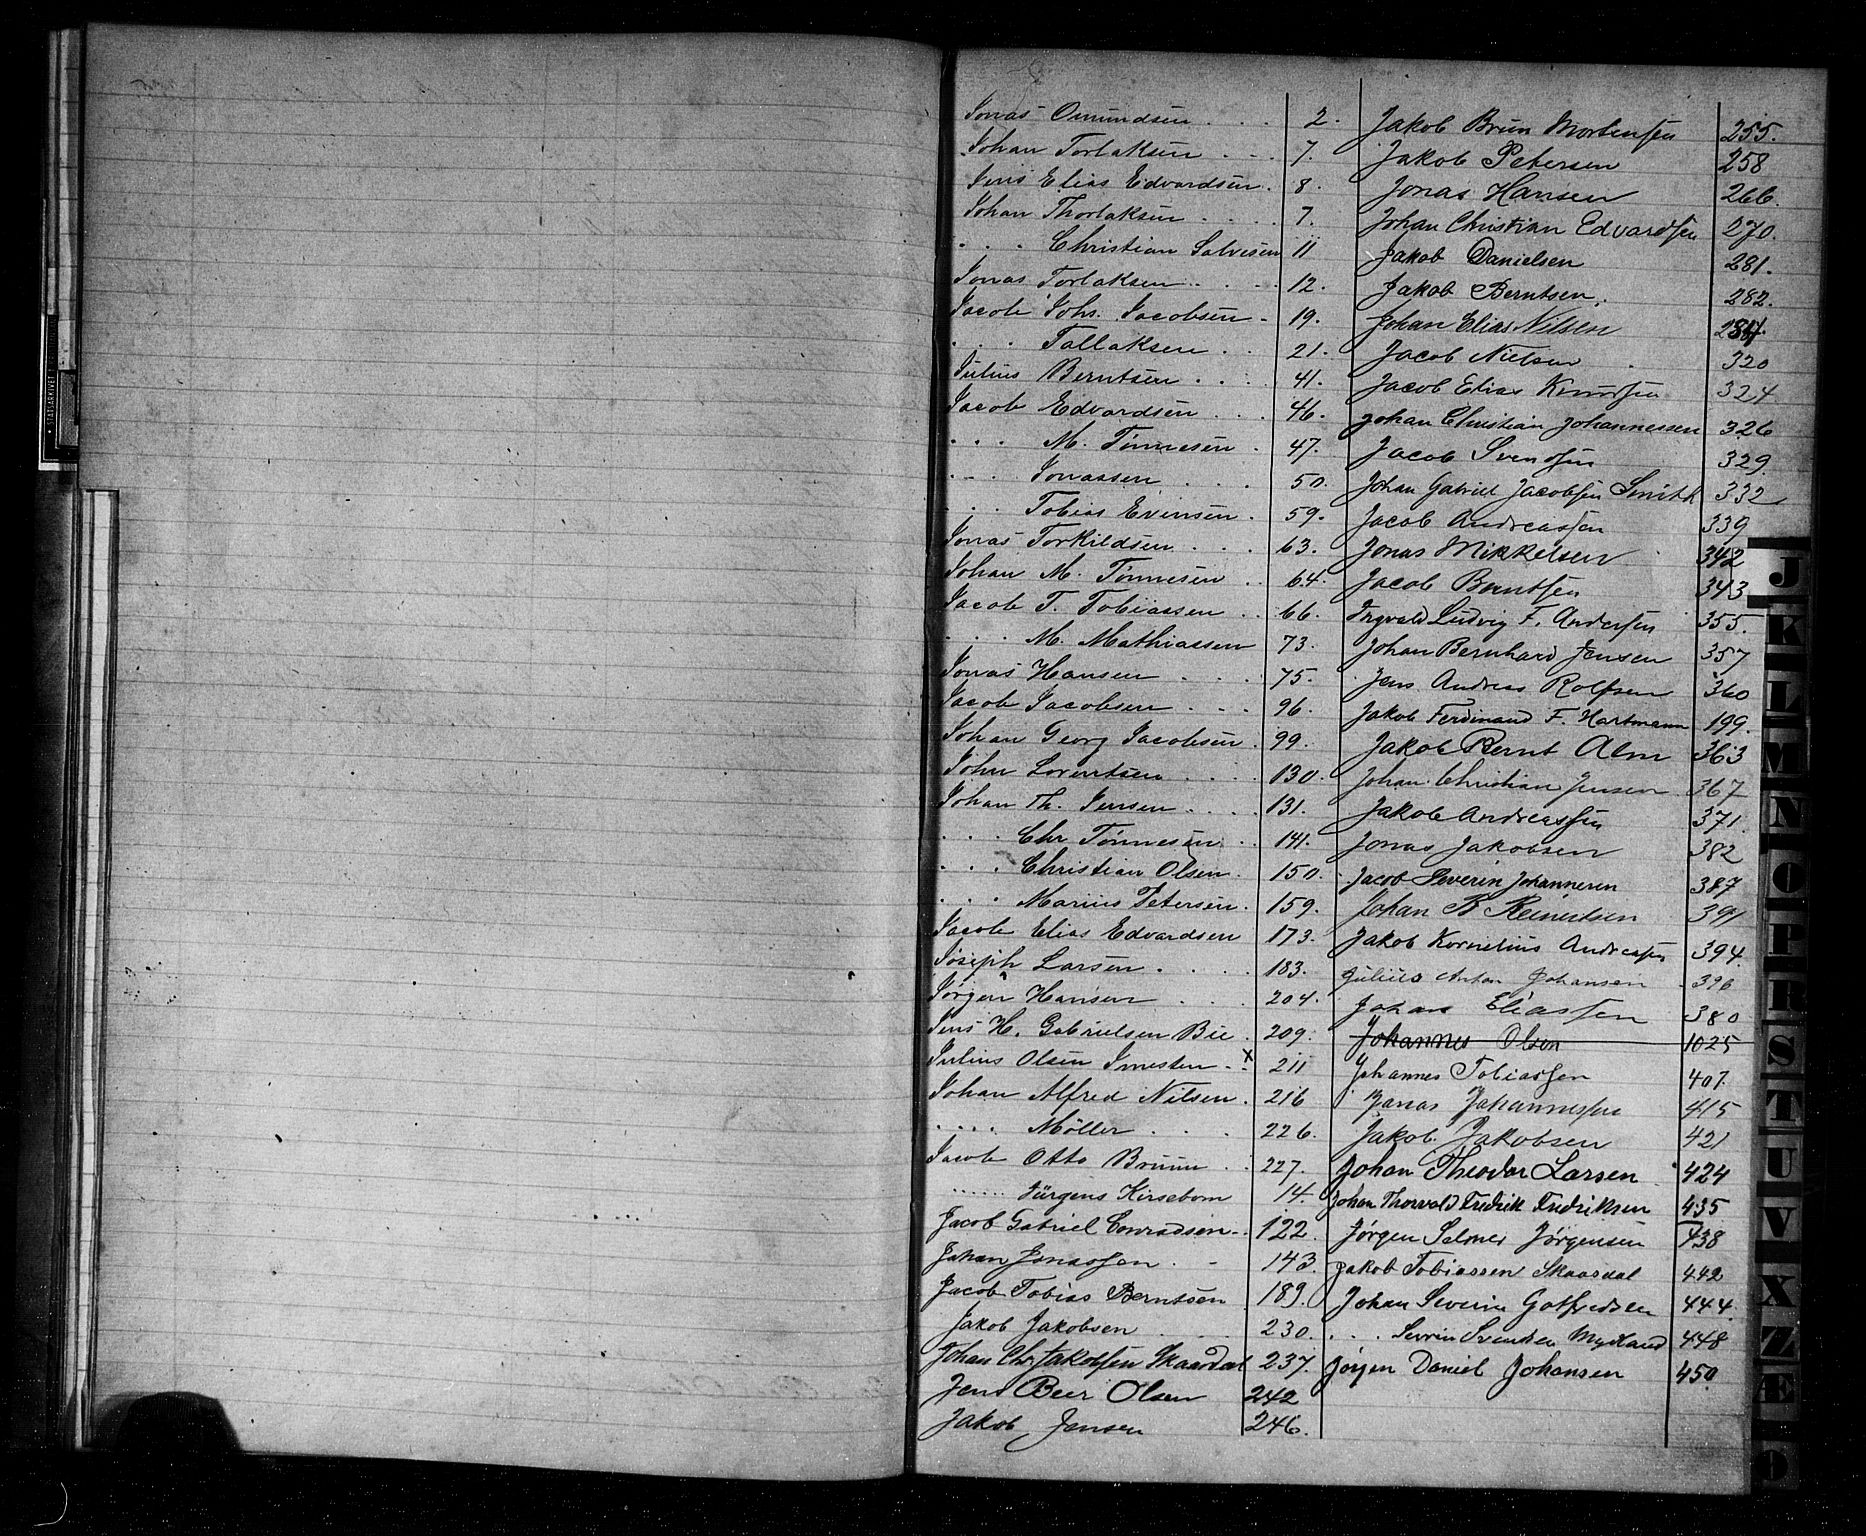 Jonas Omundsen . . . 2.
Johan Torlaksen . . . 7.
Jens Elias Edvardsen. 8.
Johan Thorlaksen . . . . 7.
. . . Christian Salvesen 11
Jonas Torlaksen . . . . . 12.
Jacob Johs. Jacobsen - 19.
. . . Tallaksen . . . 21.
Julius Berntsen . . . . 41.
Jacob Edvardsen . . . 46.
. . . M. Tönnesen . 47.
. - . Jonassen . . . 50.
. . . Tobias Evensen . 59.
Jonas Torkildsen . . . 63.
Johan M. Tönnesen . . 64.
Jacob T. Tobiassen . . 66.
. . . M. Mathiassen 73.
Jonas Hansen . . . . 75.
Jacob Jacobsen . - - . 96.
Johan Georg Jacobsen . 99.
John Lorentsen . . . . 130.
Johan Th. Jensen . . . . 131.
. . . Chr Tönnesen . . 141.
. . . Christian Olsen . 150.
. . . Marius Petersen . 159.
Jacob Elias Edvardsen 173.
Joseph Larsen . . . . 183.
Jörgen Hansen . . . 204.
Jens H. Gabrielsen Bie . 209.
Julius Olsen . . x 211
Johan Alfred Nilsen . 216
. . . . Möller . . . 226.
Jacob Otto Bruun . . 227.
...... Jürgens Kirsebom 14.
Jacob Gabriel Conradsen . . 122.
Johan Jonassen . - 143.
Jacob Tobias Berntsen 189.
Jakob Jakobsen . . . 230.
Johan Chr. Jakobsen Skaasdal 237.
Jens Beer Olsen 242
Jakob Jensen 246.
Jakob Brun Mortensen 255.
Jakob Petersen 258
Jonas Hansen 266.
Johan Christian Edvardsen 270.
Jakob Danielsen 281.
Jakob Berntsen. 282.
Johan Elias Nilsen 284.
Jacob Nielsen . 320
Jacob Elias Knudsen 324
Johan Christian Johannessen 326
Jacob Svendsen 329.
Johan Gabriel Jacobsen Smith 332
Jacob Andreassen 339
Jonas Mikkelsen 342
Jacob Berntsen 343
Ingvald Ludvig F. Andersen 355.
Johan Bernhard Jensen 357
Jens Andreas Rolfsen 360
Jakob Ferdinand F. Hartmann 199.
Jakob Bernt Alm 363
Johan Christian Jensen 367
Jakob Andreassen 371.
Jonas Jakobsen 382
Jacob Severin Johannesen 387
Johan B Reinertsen 391
Jakob Kornelius Andreassen 394.
Julius Anton Johansen 390
Johan Eliassen 380
Johannes Olsen 1025
Johannes Tobiassen 407.
Jonas Johannessen 415
Jakob Jakobsen 421
Johan Theodor Larsen . 424
Johan Thorvald Fredrik Fredriksen 435
Jörgen Selmer Jörgensen 438
Jakob Tobiassen Skaasdal 442
Johan Severin Gotfredsen 444.
. . . Sevrin Svendsen Mydland 448
Jörgen Daniel Johansen 450.
J
K
L
M
N
O
P
R
S
T
U
V
X
Z
Æ
Ø
STATSARKIVET